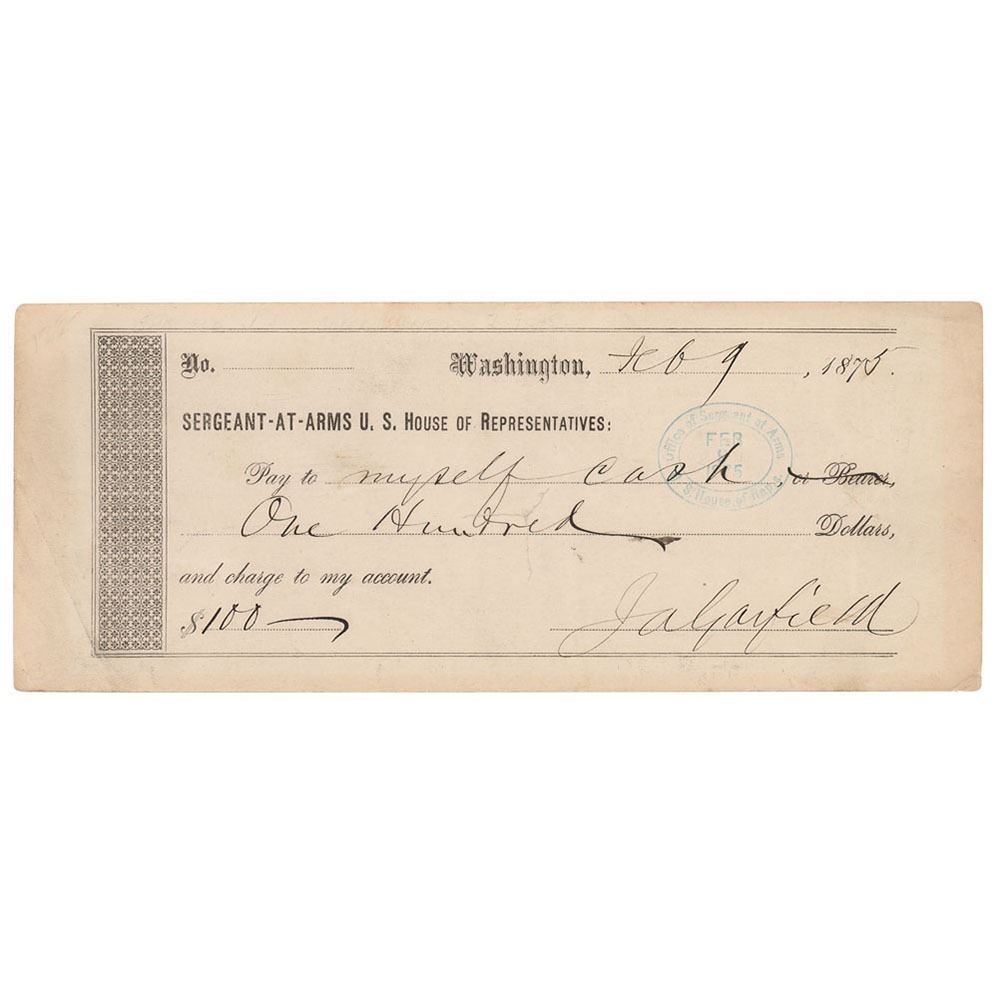 No. Washington, Feb 9, 1875.
SERGEANT-AT-ARMS U. S. HOUSE OF REPRESENTATIVES:
Office of Sergeant at Arms
FEB
U. S. House of Reps.
Pay to myself cash or Bearer,
One Hundred Dollars,
and charge to my account.
$100
JAGarfield